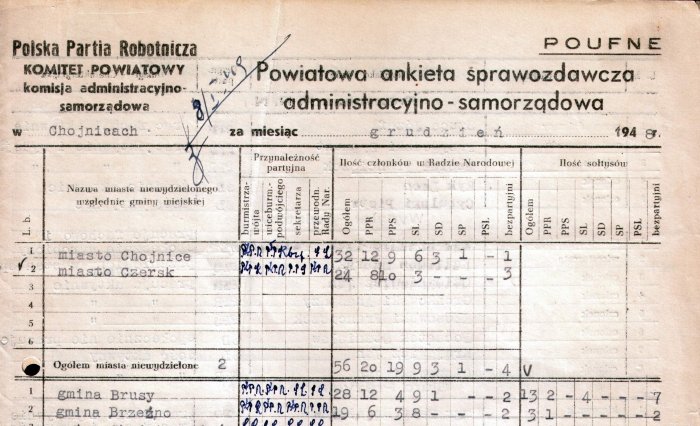 Polska Partia Robotnicza
KOMITET POWIATOWY
komisja administracyjno-
samorządowa
POUFNE
Powiatowa ankieta sprawozdawcza
administracyjno-samorządowa
w Chojnicach za miesiąc grudzień 1948 r.
L. b.
Nazwa miasta niewydzielonego
względnie gminy wiejskiej
Przynależność
partyjna
burmistrza-
wójta
viceburm.-
podwójciego
sekretarza
przewodn.
Rady Nar.
Ilość członków w Radzie Narodowej
Ogółem PPR PPS SL SD SP PSL bezpartyjni
Ilość sołtysów
Ogółem PPR PPS SL SD SP PSL bezpartyjni
1 miasto Chojnice 32 12 9 6 3 1 - 1
2 miasto Czersk 24 8 10 3 - - - 3
3
4
5
6
Ogółem miasta niewydzielone 2 56 20 19 9 3 1 - 4
1 gmina Brusy 28 12 4 9 1 - - 2 13 2 - 4 - - - 7
2 gmina Brzeźno 19 6 3 8 - - - 2 3 1 - - - - - 2